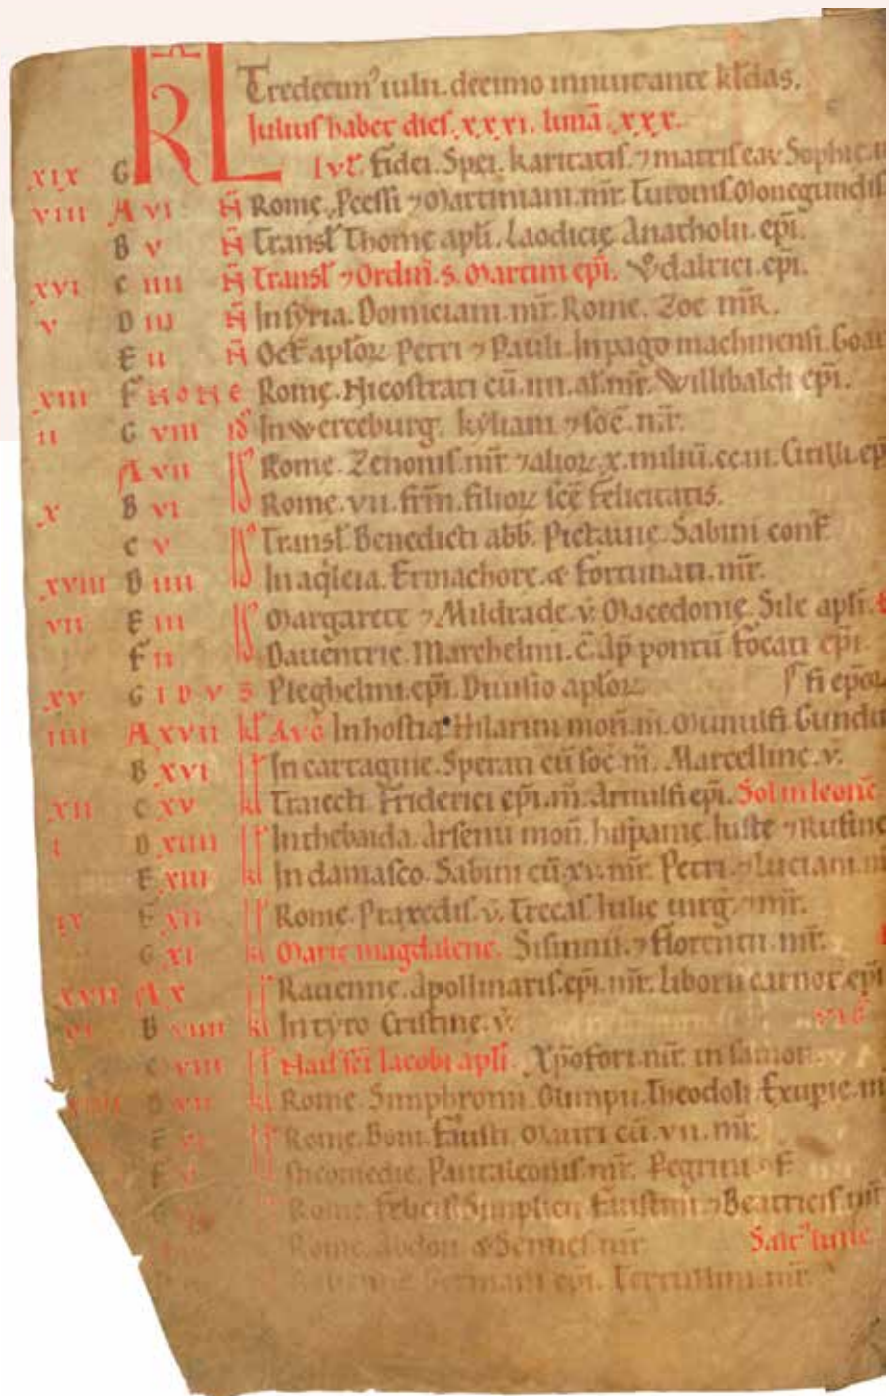 KL Tredecim' iulii. decimo innuit ante kl'das.
Iulius habet dies .xxxi. lunā .xxx.
xix G Iul'. fidei. Spei. karitatis. ⁊ matris eaꝝ Sophie.
viii A vi N̄ Rome. Pcessi ⁊ Martiniani. mr̄. Turonis. Monegundis
B v N̄ Transl' Thome apl'i. Laodicię Anatholii. ep̄i.
xvi C iiii N̄ Transl' ⁊ Ordin̄. s. Martini ep̄i. Vdalrici. ep̄i.
v D iii N̄ In syria. Domiciani. mr̄. Rome. Zoe mR̄.
E ii N̄ Oct' aplōꝝ Petri ⁊ Pauli. In pago machinensi. Goar
xiii F NONE Romę. Nicostrati cū. iiii. al'. mr̄. Willibaldi ep̄i.
ii G viii id' In werceburg. kyliani ⁊ soc̄. mr̄.
A vii id' Rome. Zenonis. mr̄ ⁊ alioꝝ .x. miliū. cciii. Cirilli. ep̄
x B vi id' Rome. vii. fr̄m. filioꝝ sc̄ę felicitatis.
C v id' Transl' Benedicti abb̄. Pictauie. Sabini conf'.
xviii D iiii id' In aq'leia. Ermachore. & fortunati. mr̄.
vii E iii id' Margaretę ⁊ Mildrade. v̄. Macedonię. Sile apl'i.
F ii id' Dauentrie. Marchelmi. c̄. Ap' pontū focati ep̄i
xv G IDVS Pleghelmi. ep̄i. Diuisio aplōꝝ fi ep̄oꝝ
iiii A xvii kl' Auḡ In hostia Hilarini mon̄. m̄. Munulfi. Gundu
B xvi kl' In cartagine. Sperati cū soc̄ m̄. Marcelline. v̄.
xii C xv kl' Traiecti. friderici ep̄i. m̄. Arnulfi ep̄i. Sol in leonē
i D xiiii kl' In thebaida. Arsenii mon̄. hispanię. Iuste ⁊ Rufine
E xiii kl' In damasco. Sabini cū .xv. mr̄. Petri. ⁊ Luciani. m
ix F xii kl' Rome. Praxedis. v̄. Trecas Iulię uirḡ. ⁊ mr̄.
G xi kl' Marie magdalene. Sisinnii. ⁊ florentii. mr̄.
xvii A x kl' Rauenne. Apollinaris. ep̄i. mr̄. Liborii carnot. ep̄i
vi B viiii kl' In tyro Cristine. v̄.
C viii kl' Nat' sc̄i Iacobi apl'i. Xp̄ofori. mr̄. in samon.
D vii kl' Rome. Simphronii. Olimpii. Theodoli. Exupie. m
E vi kl' Rome. Boni. fausti. Mauri cū. vii. mr̄.
F v kl' Nicomedie. Pantaleonis. mr̄.
Rome. felicis Simplicii. faustini. ⁊ Beatricis. mr̄
Rome. Abdon. & Sennes. mr̄
Germani ep̄i. Tertullini. mr̄.